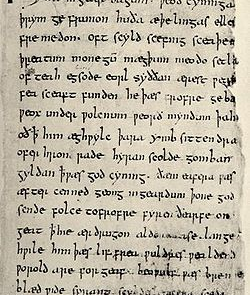 ingear dagum. þeod cyninga
þrym ge frunon huða æþelingas elle
fre medon. oft scyld scefing sceaþe
þreatum monegū mægþum meodo setl
of teah egsode eorl syððan ærest ƿe
fea sceaft funden he þæs frofre geba
ƿeox under ƿolcnum ƿeorð myndum þah
oð ꝥ him æghƿylc þara ymb sittendra
ofer hron rade hyran scolde gomban
gyldan ꝥ ƿæs god cyning. ðæm eafera ƿæs
æfter cenned geong ingeardum þone god
sende folce tofrofre fyren ðearfe on
geat ꝥ hie ær drugon aldor ase. lange
hƿile him þæs lif frea ƿuldres ƿealdend
ƿorold are for geaf. beoƿulf ƿæs breme
blæd ƿide sprang scyldes eafera